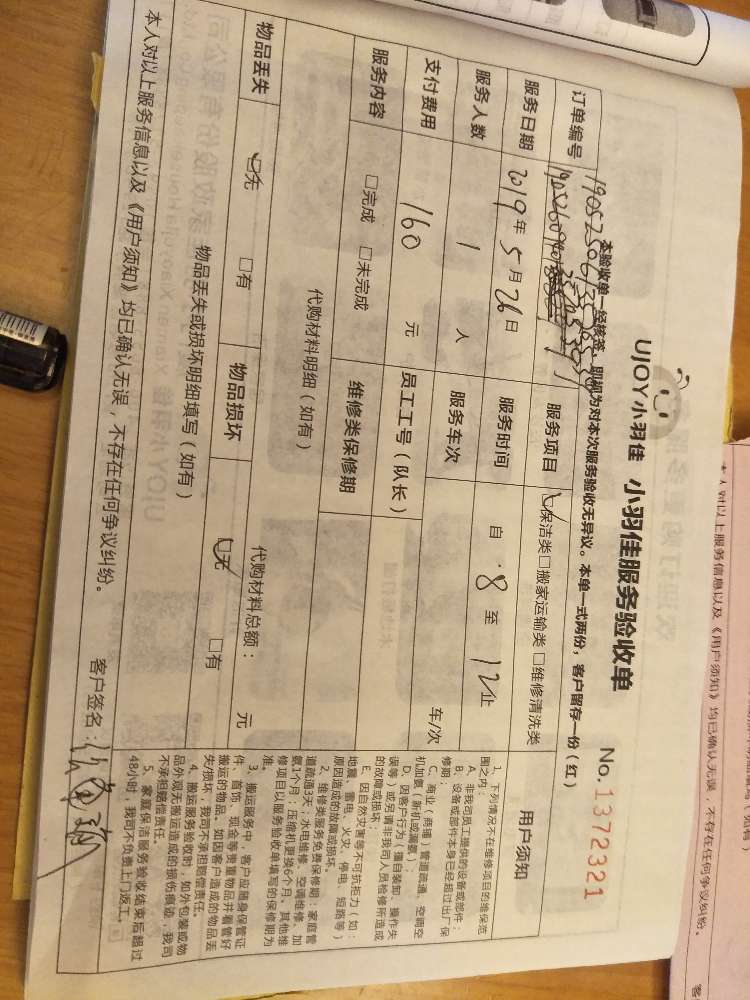 UJOY小羽佳 小羽佳服务验收单
No.1372321
本验收单一经核签，即视为对本次服务验收无异议。本单一式两份，客户留存一份（红）
订单编号
服务项目 保洁类 □搬家运输类 □维修清洗类
服务日期 2019年5月26日
服务时间 自 8 至 12止
服务人数 1 人
服务车次 车/次
支付费用 160 元
员工工号（队长）
服务内容 □完成 □未完成
维修类保修期
代购材料明细（如有）
代购材料总额： 元
物品丢失 无 □有
物品损坏 无 □有
物品丢失或损坏明细填写（如有）
本人对以上服务信息以及《用户须知》均已确认无误，不存在任何争议纠纷。
客户签名：
用户须知
1、下列情况不在维修项目的维保范
围之内：
A、非我司员工提供的设备或部件；
B、设备或部件本身已经超过出厂保
修期；
C、商业（商铺）管道疏通、空调空
机加氨（新机或漏氨）；
D、因客户行为（擅自装卸、操作失
误等）或另请非我司人员检修所造成
的故障或损坏；
E、因自然灾害等不可抗拒力（如：
地震、雷电、火灾、停电、短路等）
原因造成的故障或损坏。
2、维修类服务免费保修期：家庭管
道疏通3天；水电维修、空调维修、加
氨1个月；压缩机更换6个月。其他维
修项目以服务验收单填写的保修期为
准。
3、搬运服务中，客户应随身保管证
件、首饰、现金等贵重物品并看管好
搬运的物品。如因客户造成的物品丢
失/损坏，我司不承担赔偿责任。
4、搬运服务验收时，如外包装或物
品外观无搬运造成的损伤痕迹，我司
不承担赔偿责任。
5、家庭保洁服务验收结束后超过
48小时，我司不负责上门返工。
本人对以上服务信息以及《用户须知》均已确认无误，不存在任何争议纠纷。